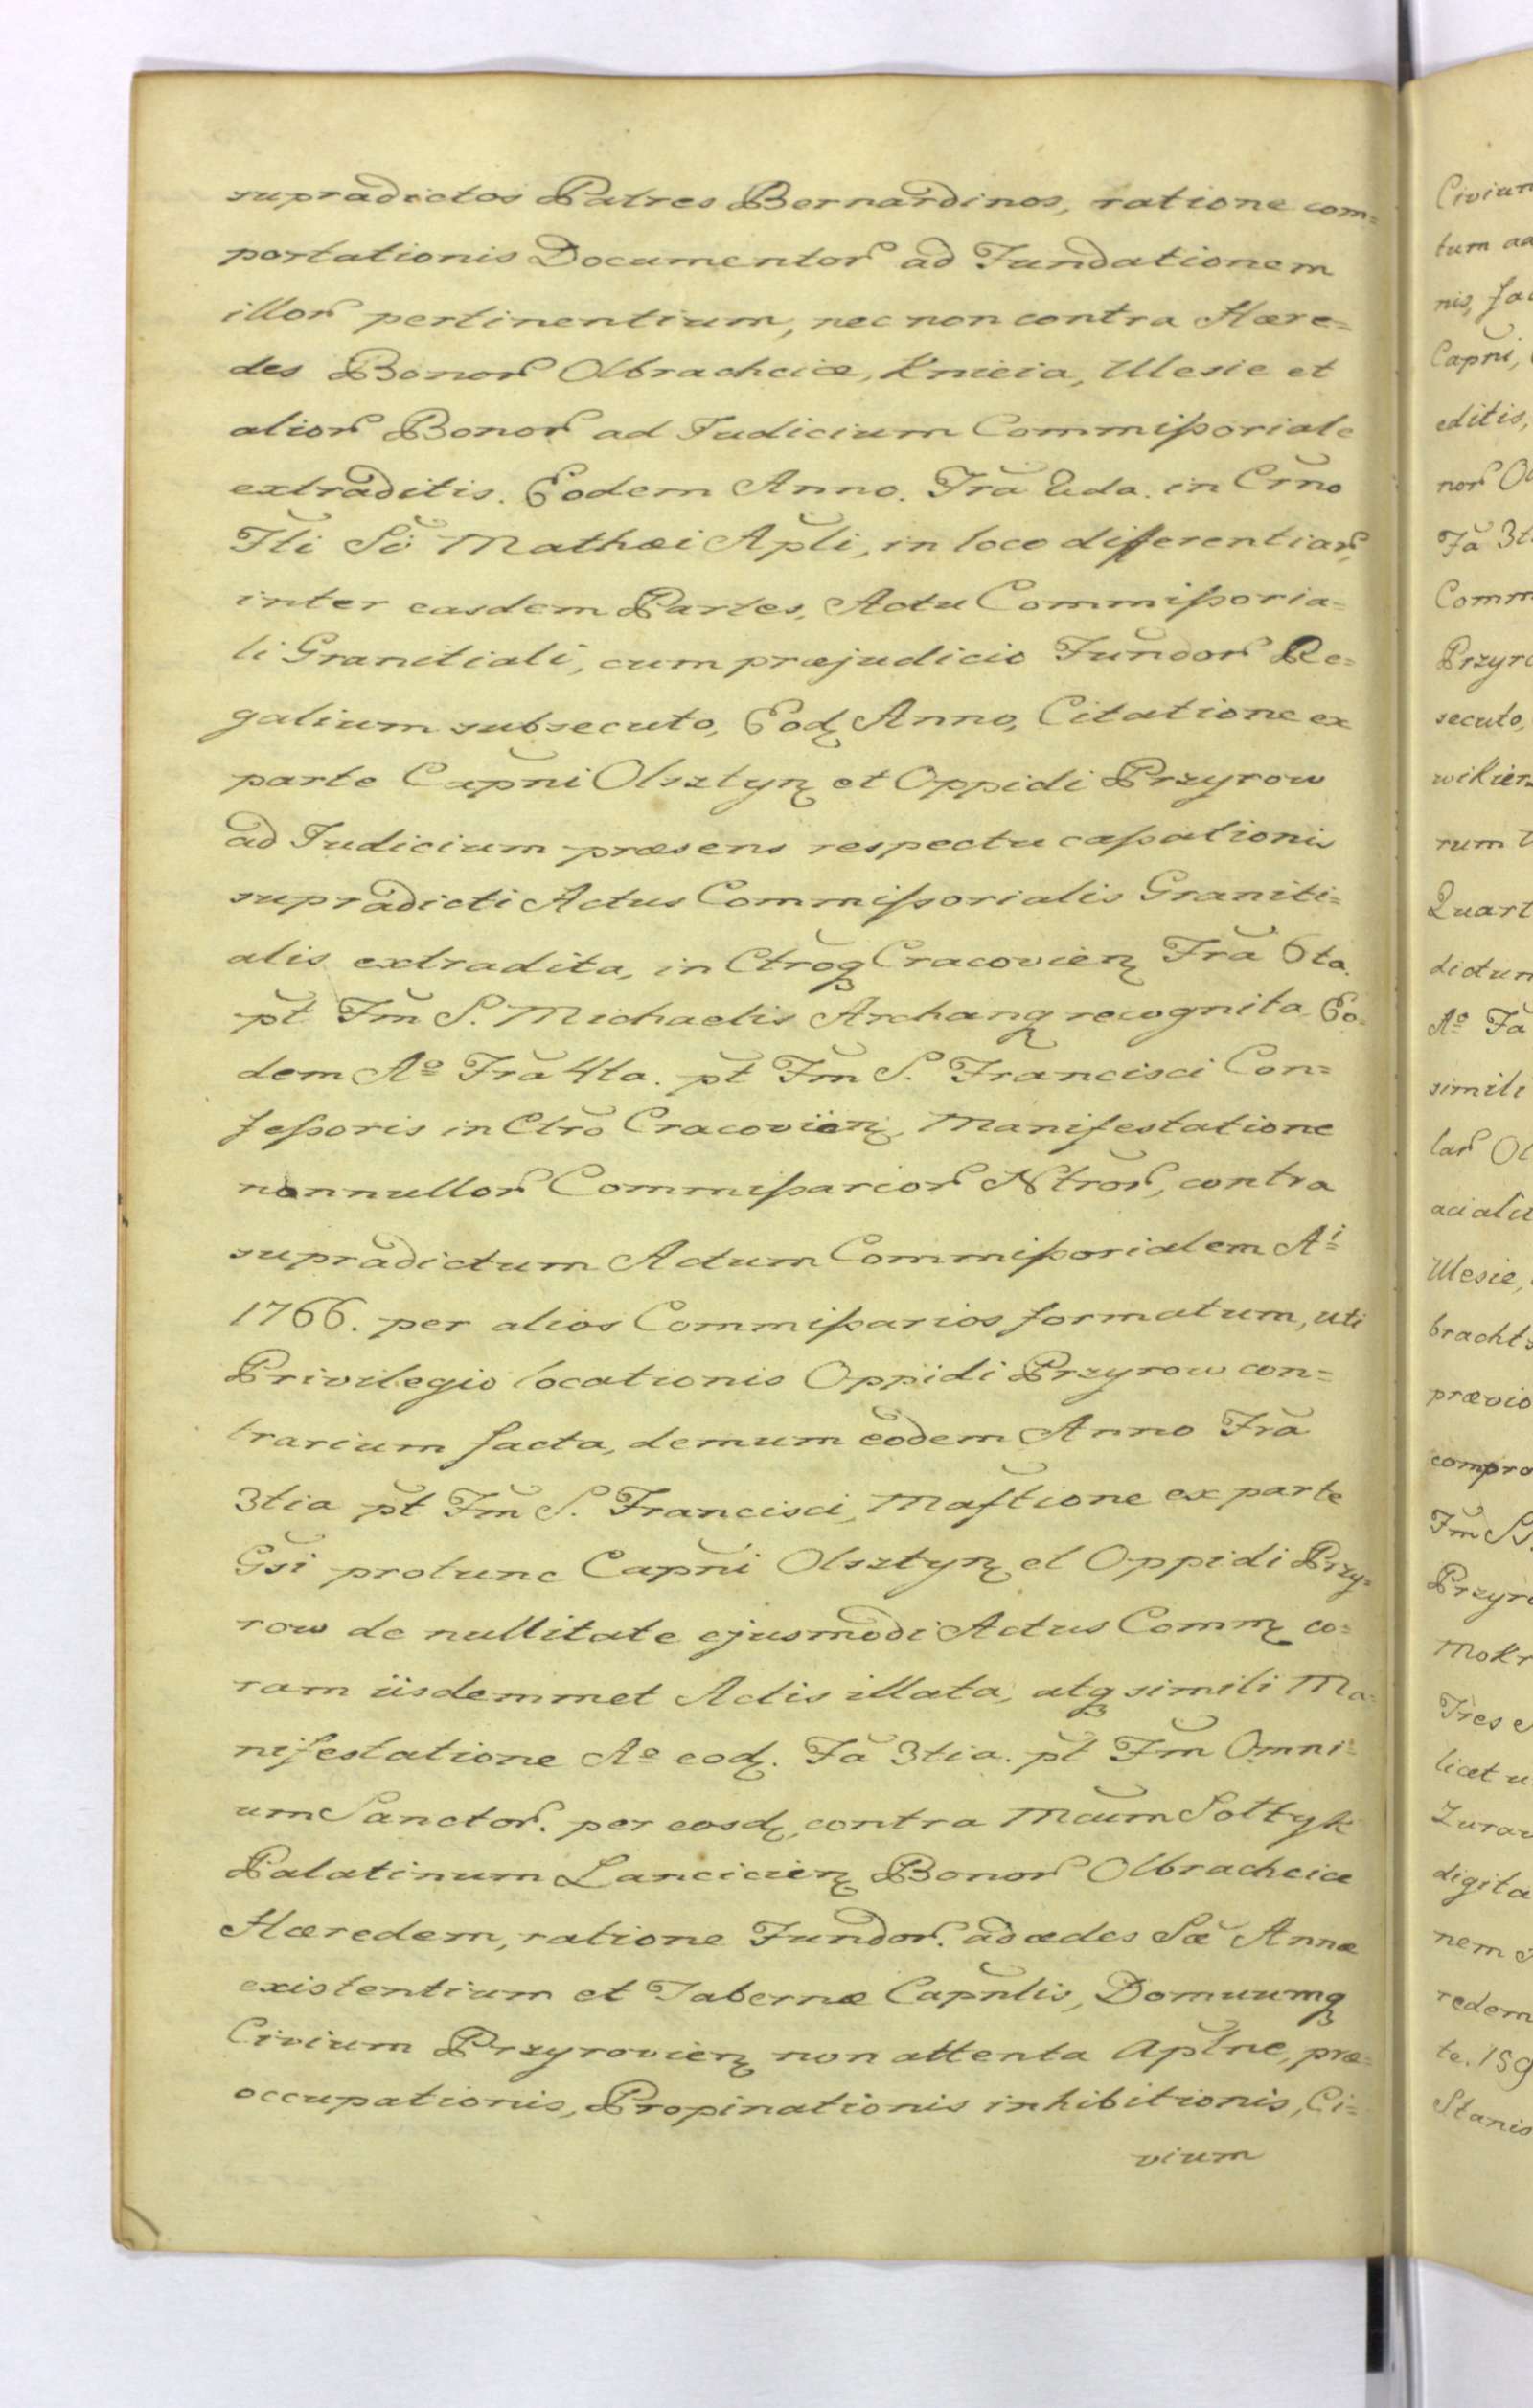 supradictos Patres Bernardinos, ratione com=
portationis Documentor ad Fundationem
illor pertinentium, nec non contra Hære=
des Bonor Olbrachcice, Knieia, Ulesie et
alior Bonor ad Judicium Commissoriale
extraditis. Eodem Anno. Fra 2da. in Crno
Fti Si Mathæi Apli, in loco differentiar,
inter easdem Partes, Actu Commissoria=
li Granitiali, cum præjudicio Fundor Re=
galium subsecuto, Eod Anno, Citatione ex
parte Capni Olsztyn et Oppidi Przyrow
ad Judicium præsens respectu cassationis
supradicti Actus Commissorialis Graniti=
alis extradita, in Ctroq Cracovien Fra 6ta.
pt Fm S. Michaelis Archang recognita, Eo=
dem Aº Fra 4ta. pt Fm S. Francisci Con=
fessoris in Ctro Cracovien, Manifestatione
nonnullor Commissarior Ntror, contra
supradictum Actum Commissorialem Ai
1766. per alios Commissarios formatum, uti
Privilegio locationis Oppidi Przyrow con=
trarium facta, demum eodem Anno Fra
3tia pt Fm S. Francisci, Mastione ex parte
Gsi protunc Capni Olsztyn et Oppidi Przy=
row de nullitate ejusmodi Actus Comm co=
ram iisdemmet Actis illata, atq simili Ma=
nifestatione Aº eod. Fa 3tia. pt Fm Omni=
um Sanctor. per eosd, contra Mcum Sołtyk
Palatinum Lancicien Bonor Olbrachcice
Hæredem, ratione Fundor. ad ædes Sæ Annæ
existentium et Tabernæ Capnlis, Domuumq
Civium Przyrovien non attenta Aplne, præ=
occupationis, Propinationis inhibitionis, Ci=
vium